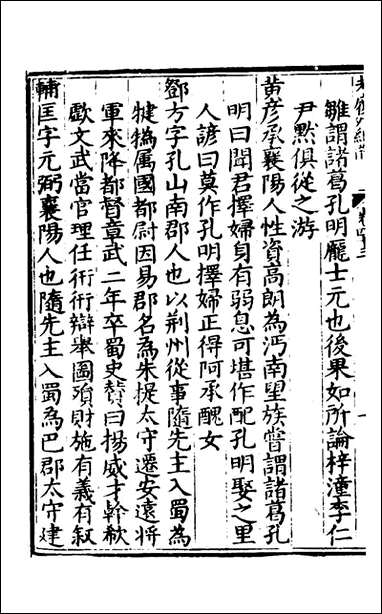 雛謂諸葛孔明龐士元也後果如所論梓潼李仁
尹黙俱從之游
黄彦承襄陽人性資高朗為沔南望族嘗謂諸葛孔
明曰聞君擇婦身有弱息可堪作配孔明娶之里
人諺曰莫作孔明擇婦正得阿承醜女
鄧方字孔山南郡人也以荆州從事隨先主入蜀為
犍為属國都尉因易郡名為朱提太守遷安遠將
軍來降都督章武二年卒蜀史賛曰揚威才幹欷
歔文武當官理任術術辯舉圖殞財施有義有叙
輔匡字元弼襄陽人也隨先主入蜀為巴郡太守建